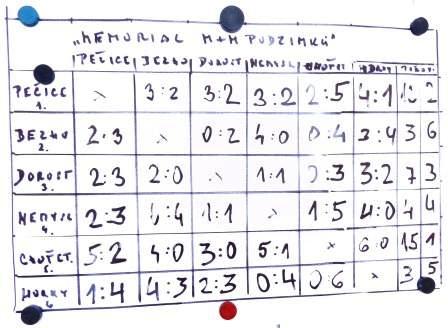 „MEMORIAL M+M PUDZIMKŮ"
PEČICE BEZNO DOROST NEMYSL CHOŤET. HORKY
PEČICE 1. × 3:2 3:2 3:2 2:5 4:1 2
BEZNO 2. 2:3 × 0:2 4:0 0:4 3:4 3 6
DOROST 3. 2:3 2:0 × 1:1 0:3 3:2 7 3
NEMYSL 4. 2:3 1:1 × 1:5 4:0 4 4
CHOŤET. 5. 5:2 4:0 3:0 5:1 × 6:0 15 1
HORKY 6. 1:4 4:3 2:3 0:4 0:6 × 3 5